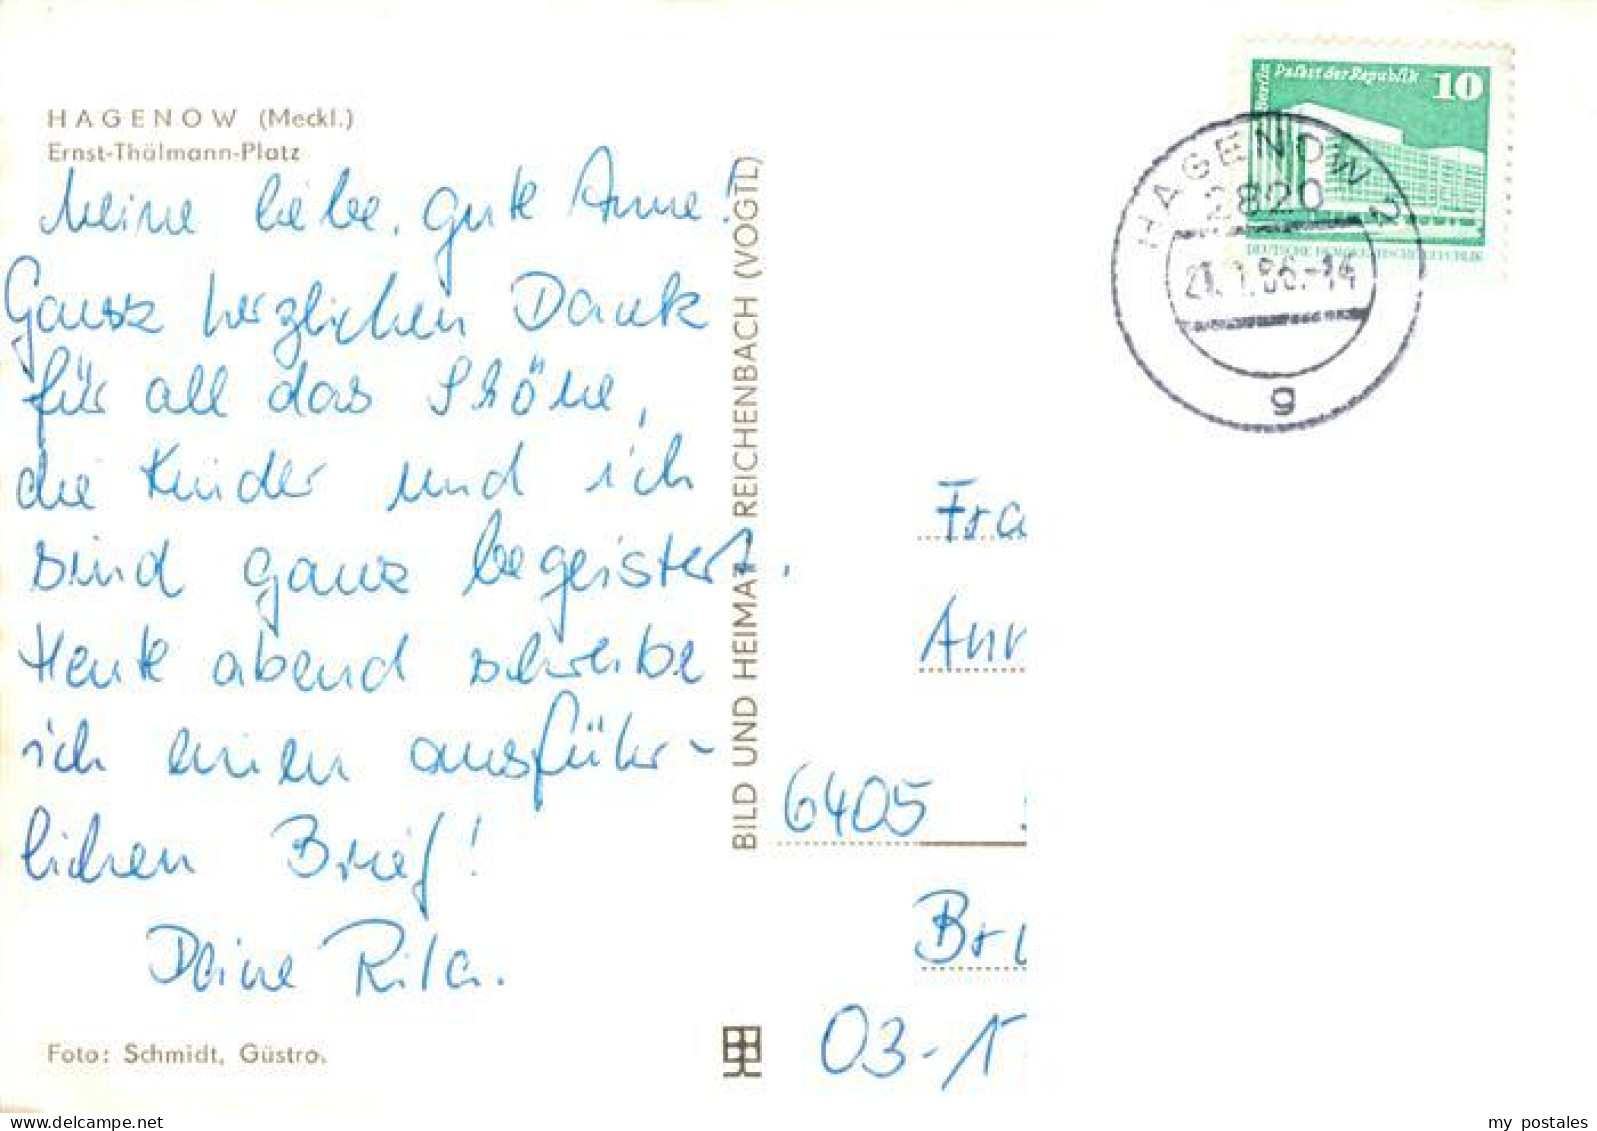 HAGENOW (Meckl.)
Ernst-Thälmann-Platz
Meine liebe, gute Anne!
Ganz herzlichen Dank
für all das Schöne,
die Kinder und ich
sind ganz begeistert.
Heute abend schreibe
ich einen ausführ-
lichen Brief!
Deine Rita.
Foto: Schmidt, Güstro
BILD UND HEIMAT REICHENBACH (VOGTL)
Berlin
Palast der Republik 10
DEUTSCHE DEMOKRATISCHE REPUBLIK
HAGENOW 2
2820
-14
g
Fra
Ann
6405
Bru
03-1
my postales